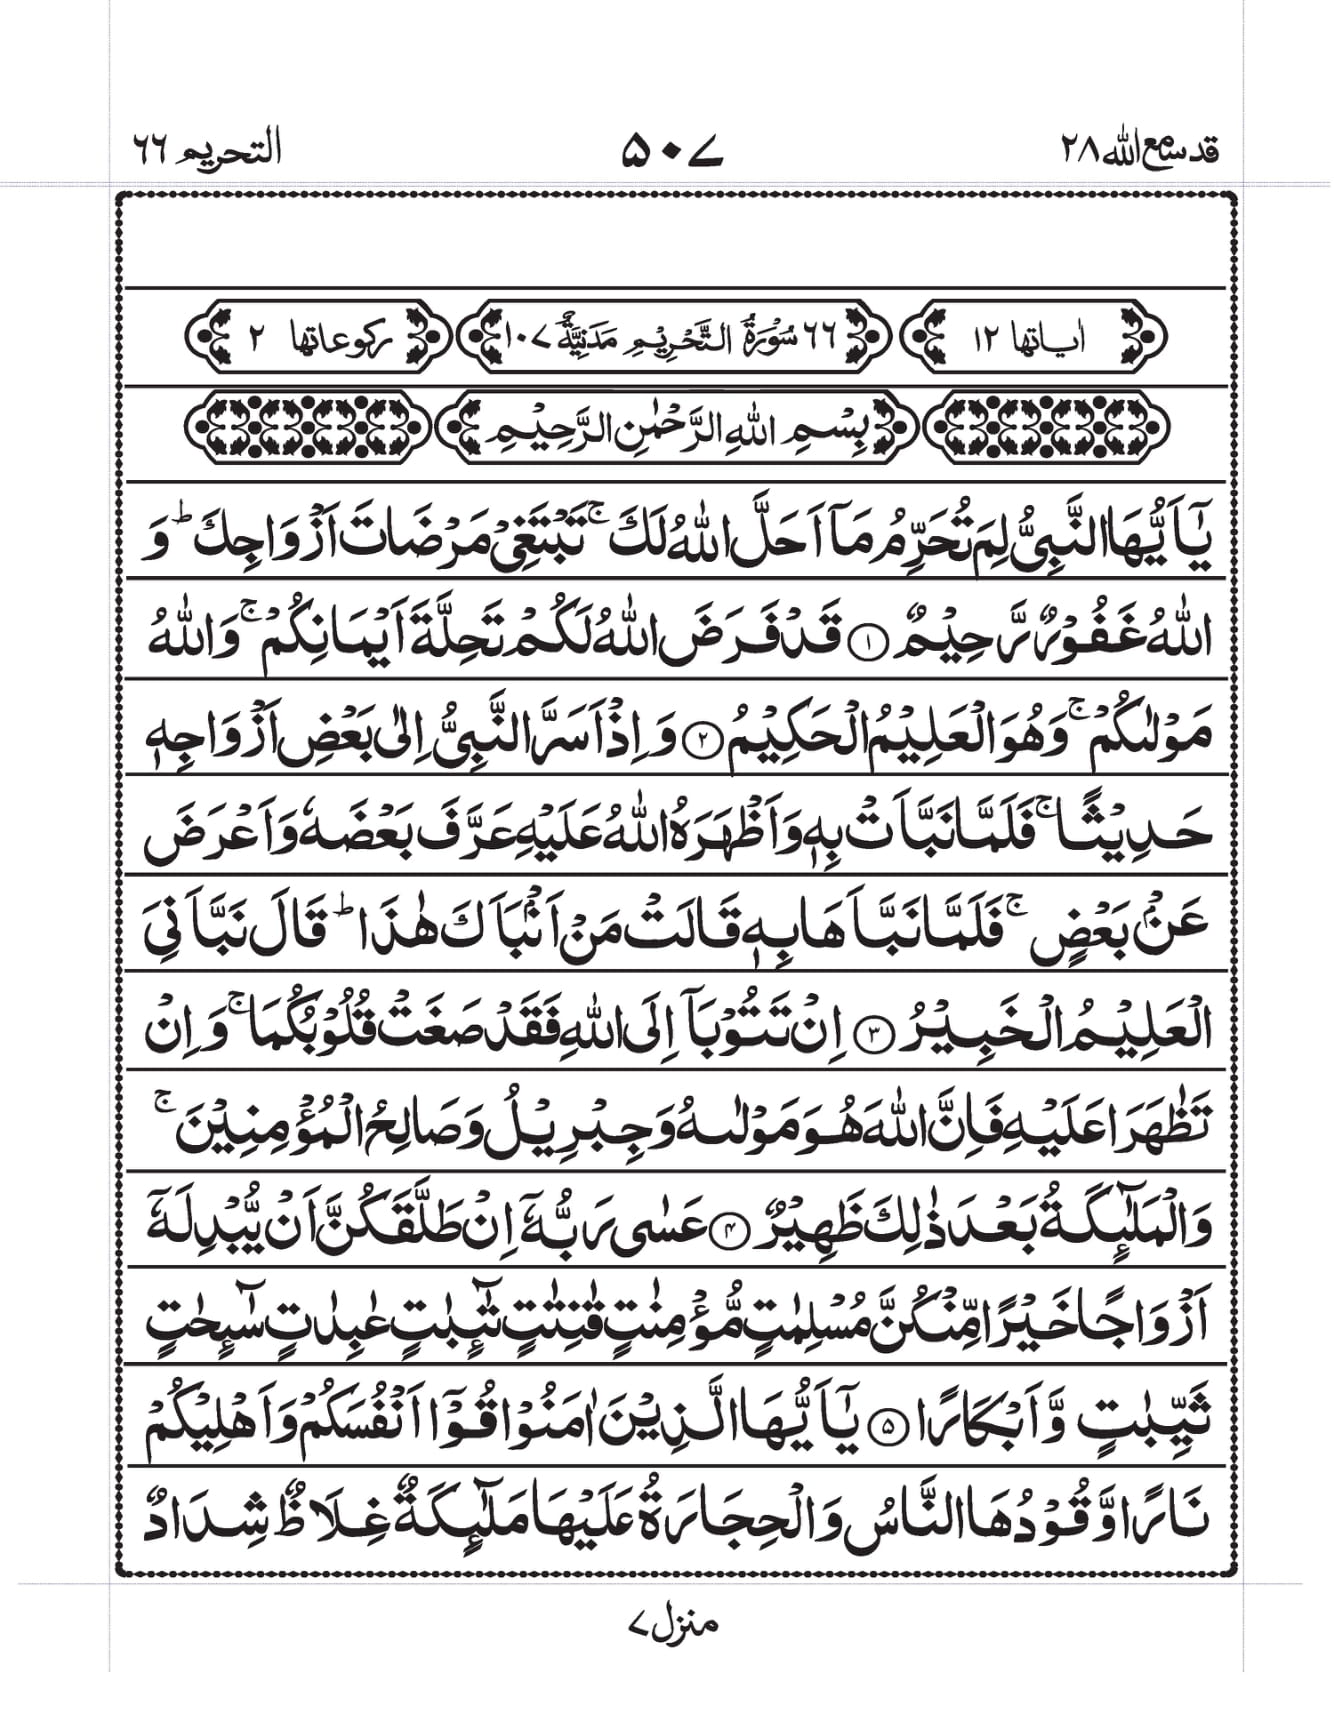 قد سمع الله ٢٨
٥٠٧
التحريم ٦٦
اٰياتها ١٢
٦٦ سُوْرَةُ التَّحْرِيْمِ مَدَنِيَّةٌ ١٠٧
ركوعاتها ٢
بِسْمِ اللهِ الرَّحْمٰنِ الرَّحِيْمِ
يٰۤاَيُّهَا النَّبِيُّ لِمَ تُحَرِّمُ مَاۤ اَحَلَّ اللهُ لَكَ ۚ تَبْتَغِيْ مَرْضَاتَ اَزْوَاجِكَ ؕ وَ
اللهُ غَفُوْرٌ رَّحِيْمٌ ۝۱ قَدْ فَرَضَ اللهُ لَكُمْ تَحِلَّةَ اَيْمَانِكُمْ ۚ وَاللهُ
مَوْلٰىكُمْ ۚ وَهُوَ الْعَلِيْمُ الْحَكِيْمُ ۝۲ وَاِذْ اَسَرَّ النَّبِيُّ اِلٰى بَعْضِ اَزْوَاجِهٖ
حَدِيْثًا ۚ فَلَمَّا نَبَّاَتْ بِهٖ وَاَظْهَرَهُ اللهُ عَلَيْهِ عَرَّفَ بَعْضَهٗ وَاَعْرَضَ
عَنْۢ بَعْضٍ ۚ فَلَمَّا نَبَّاَهَا بِهٖ قَالَتْ مَنْ اَنْۢبَاَكَ هٰذَا ؕ قَالَ نَبَّاَنِيَ
الْعَلِيْمُ الْخَبِيْرُ ۝۳ اِنْ تَتُوْبَاۤ اِلَى اللهِ فَقَدْ صَغَتْ قُلُوْبُكُمَا ۚ وَاِنْ
تَظٰهَرَا عَلَيْهِ فَاِنَّ اللهَ هُوَ مَوْلٰىهُ وَجِبْرِيْلُ وَصَالِحُ الْمُؤْمِنِيْنَ ۚ
وَالْمَلٰٓئِكَةُ بَعْدَ ذٰلِكَ ظَهِيْرٌ ۝۴ عَسٰى رَبُّهٗۤ اِنْ طَلَّقَكُنَّ اَنْ يُّبْدِلَهٗۤ
اَزْوَاجًا خَيْرًا مِّنْكُنَّ مُسْلِمٰتٍ مُّؤْمِنٰتٍ قٰنِتٰتٍ تٰٓئِبٰتٍ عٰبِدٰتٍ سٰٓئِحٰتٍ
ثَيِّبٰتٍ وَّاَبْكَارًا ۝۵ يٰۤاَيُّهَا الَّذِيْنَ اٰمَنُوْا قُوْۤا اَنْفُسَكُمْ وَاَهْلِيْكُمْ
نَارًا وَّقُوْدُهَا النَّاسُ وَالْحِجَارَةُ عَلَيْهَا مَلٰٓئِكَةٌ غِلَاظٌ شِدَادٌ
منزل ٧